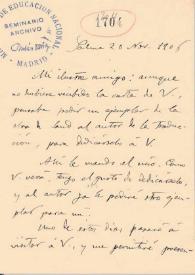 DE EDUCACION NACIONAL
SEMINARIO
ARCHIVO
MADRID
Palma 20 Nov. 1906
Mi ilustre amigo: aunque
no hubiese recibido la carta de V.,
pensaba pedir un ejemplar de la
obra de al autor de la traduc-
cion, para dedicárselo à V.
Ahí le mando el mio. Como
V. verá, tengo el gusto de dedicárselo,
y al autor ya le pediré otro ejem-
plar para mi.
Uno de estos dias pasaré à
visitar à V, y me permitiré